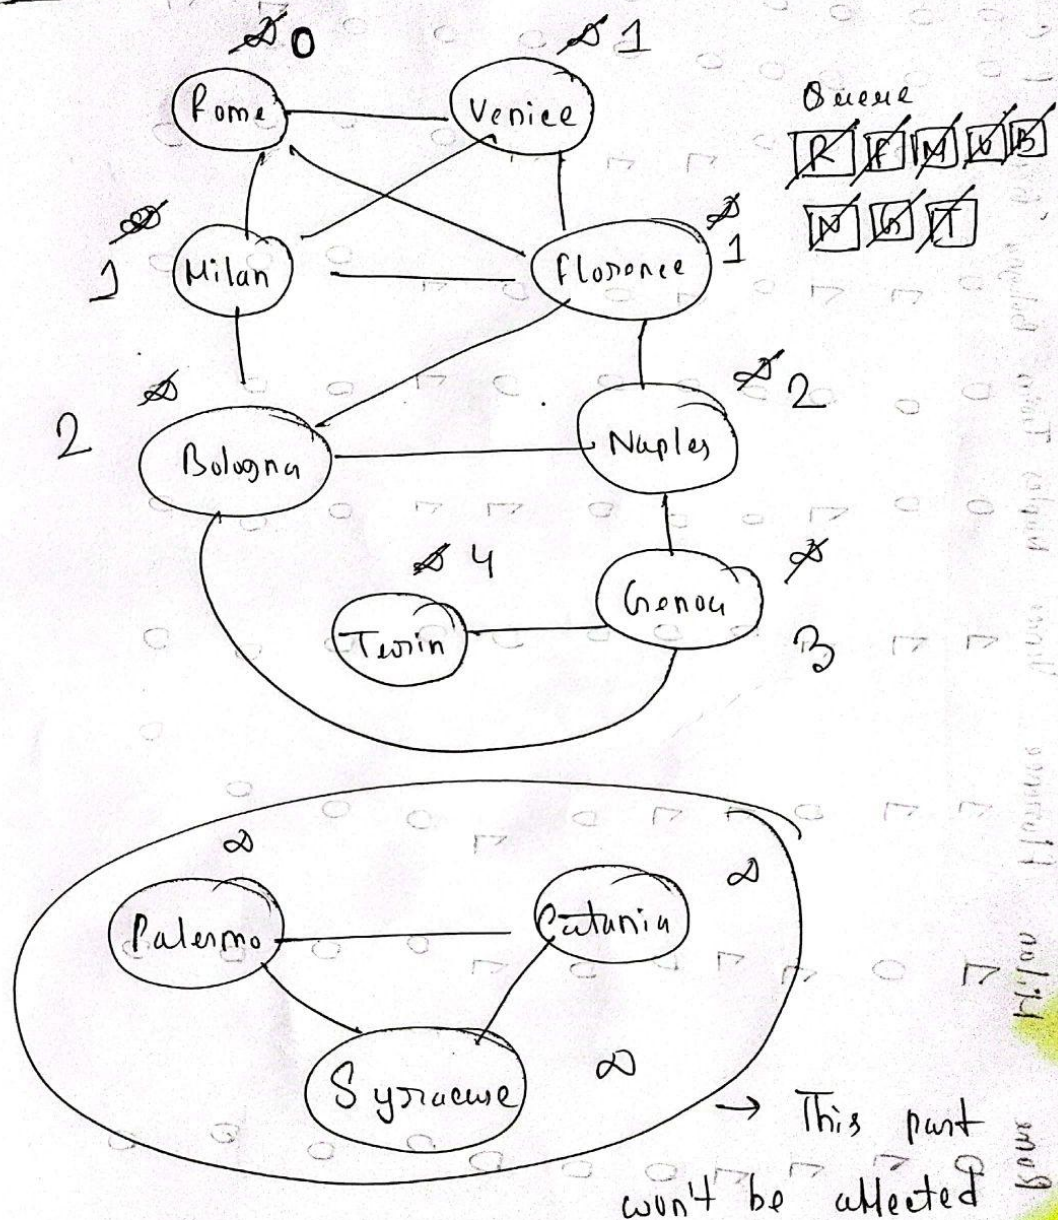 ∞ 0
∞ 1
Rome
Venice
Queue
R F M V B
N G T
∞
1
Milan
Florence
∞
1
∞
2
Bologna
∞ 2
Naples
∞ 4
Turin
Genoa
∞
3
∞
Palermo
Catania
∞
Syracuse
∞
→ This part
won't be affected